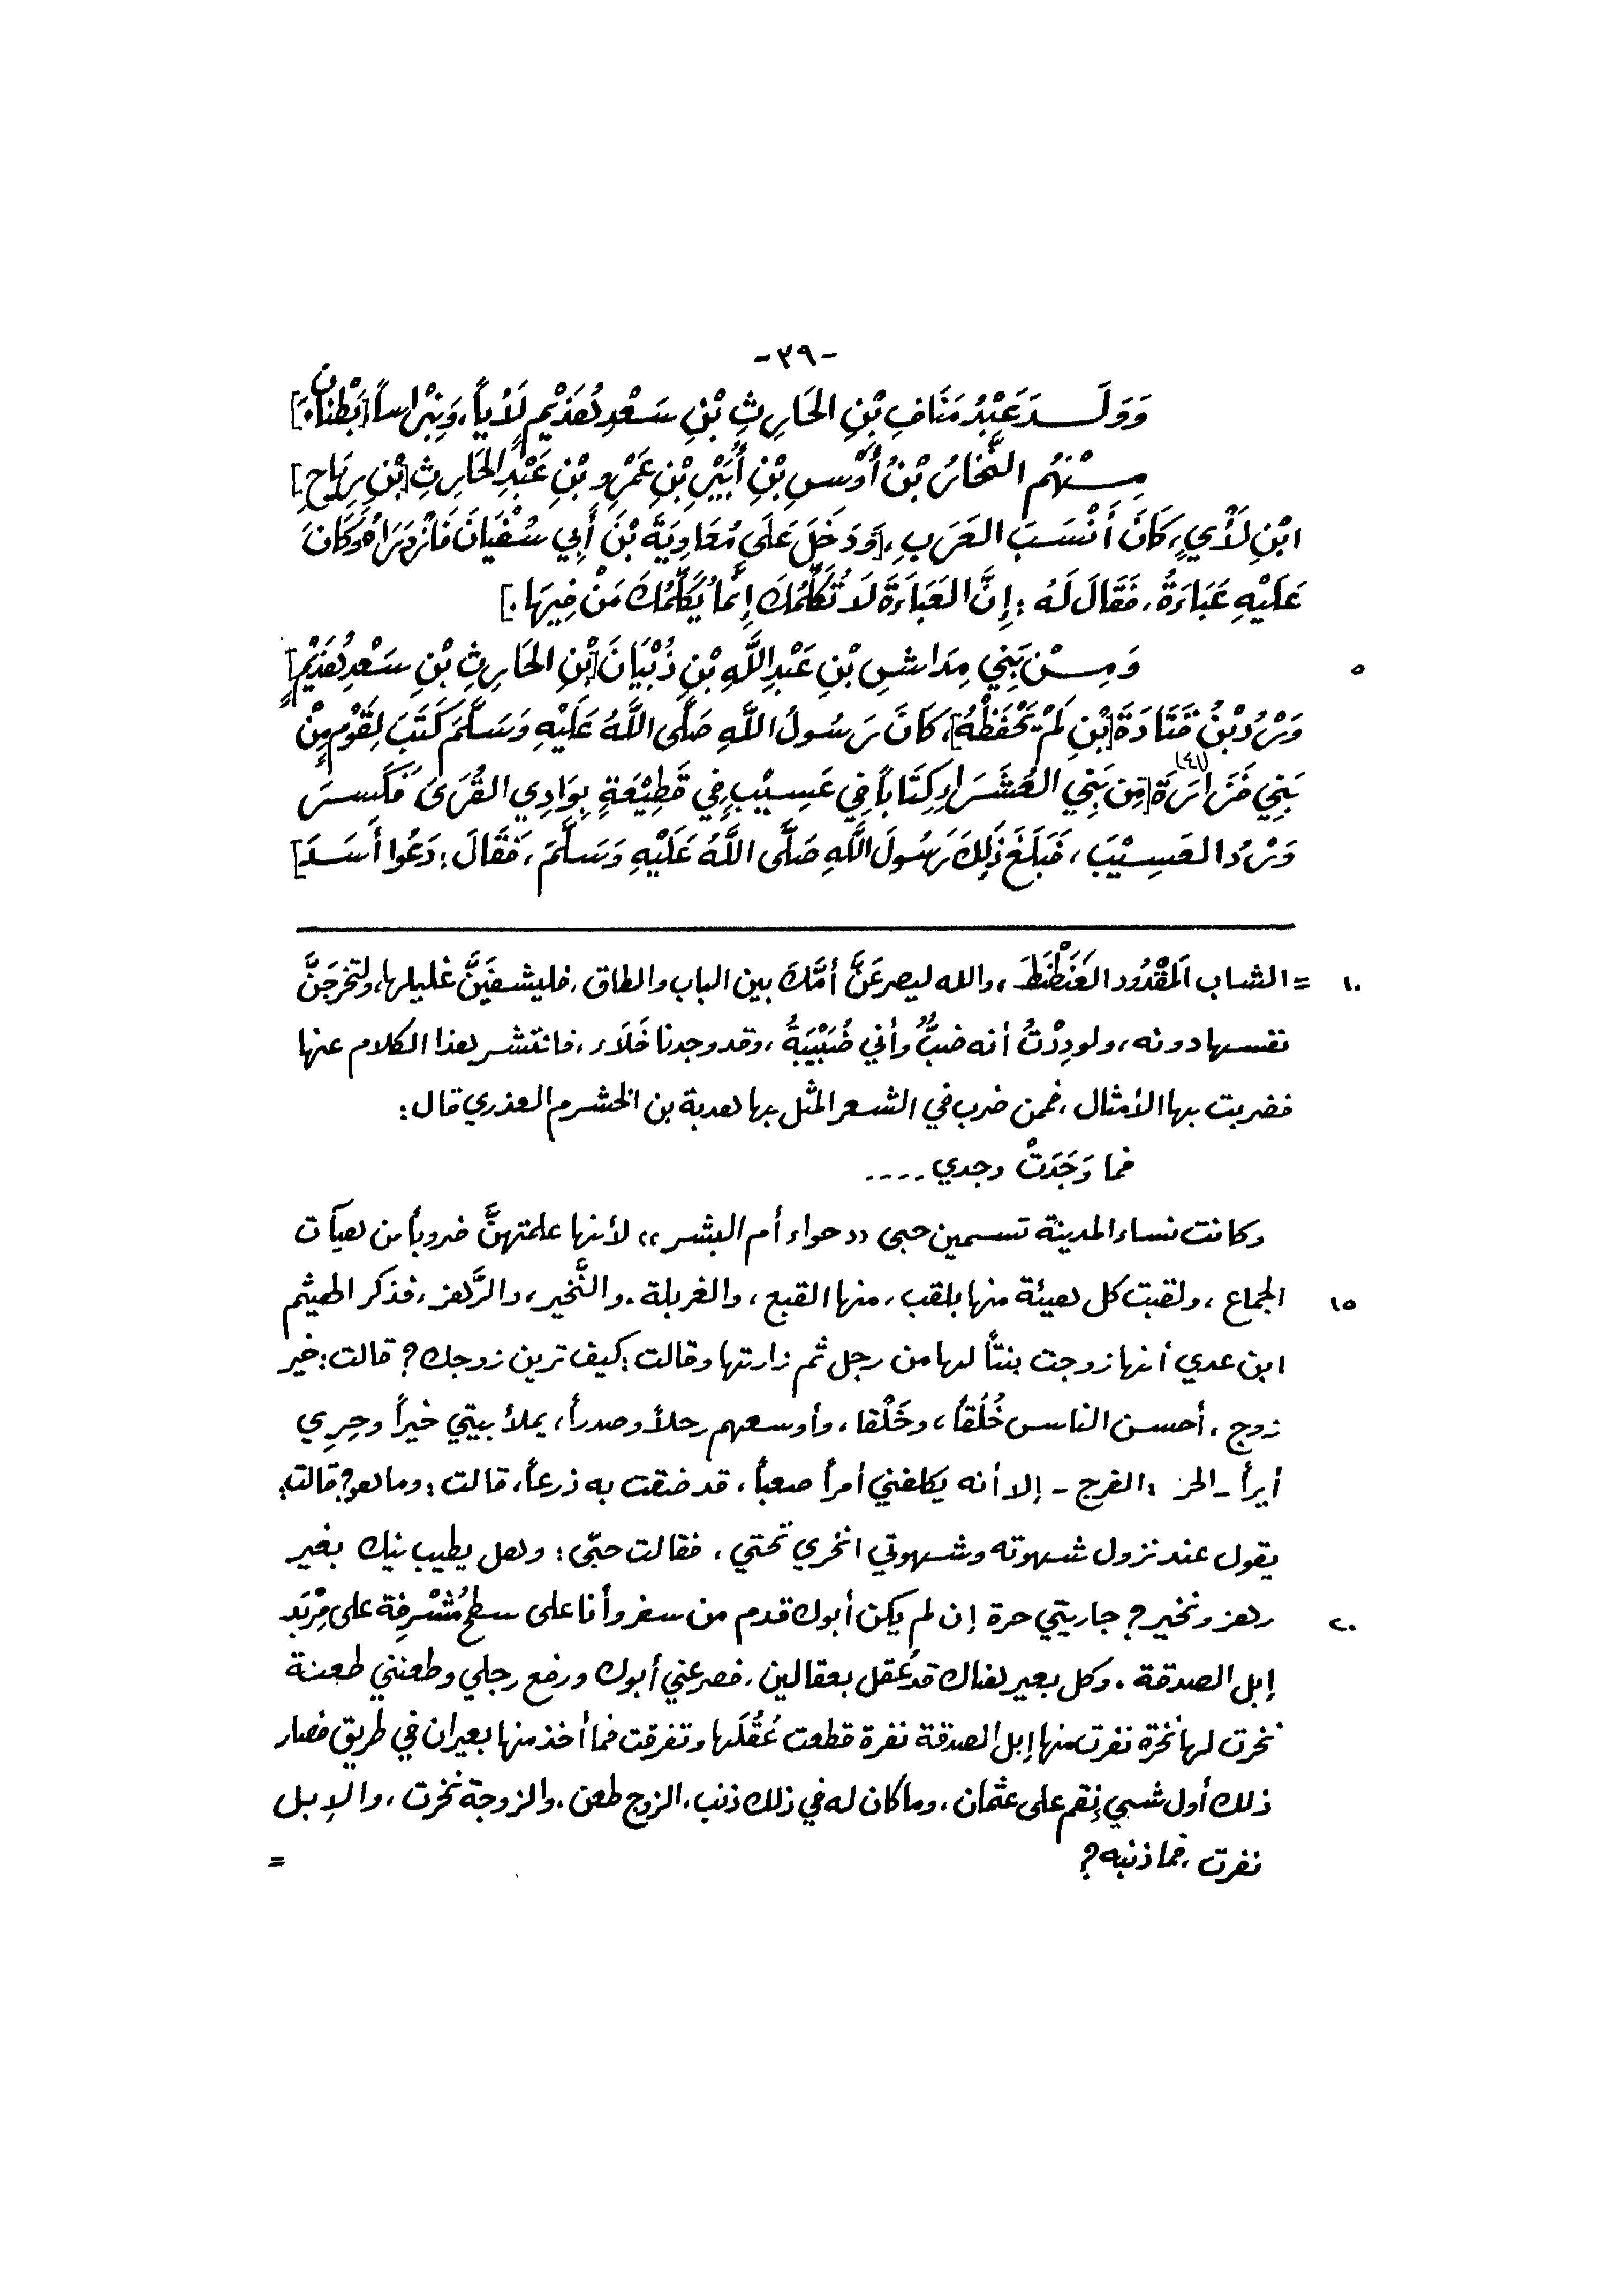 -٣٩-
وَوَلَـدَ عَبْدُ مَنَافِ بْنِ الحَارِثِ بْنِ سَعْدِ هُذَيْمٍ لَأْياً، وَنِبْرَاساً [بَطْنَانِ.]
مِنْهُم النَّخَّارُ بْنُ أَوْسِ بْنِ أُبَيْرِ بْنِ عَمْرِو بْنِ عَبْدِ الحَارِثِ [بْنِ رِيَاحِ]
ابْنِ لَأْيٍ، كَانَ أَنْسَبَ العَرَبِ، [وَدَخَلَ عَلَى مُعَاوِيَةَ بْنَ أَبِي سُفْيَانَ فَازْدَرَاهُ وَكَانَ
عَلَيْهِ عَبَاءَةٌ، فَقَالَ لَهُ : إِنَّ العَبَاءَةَ لَا تُكَلِّمُكَ إِنَّمَا يُكَلِّمُكَ مَنْ فِيهَا.]
٥ وَمِـنْ بَنِي مِدَاشِ بْنِ عَبْدِ اللَّهِ بْنِ ذُبْيَانَ [بْنِ الحَارِثِ بْنِ سَعْدِ هُذَيْمٍ]
وَرْدُ بْنُ قَتَادَةَ [بْنِ لَمْ يَحْفَظْهُ]، كَانَ رَسُولُ اللَّهِ صَلَّى اللَّهُ عَلَيْهِ وَسَلَّمَ كَتَبَ لِقَوْمٍ مِنْ
بَنِي فَزَارَةَ [مِن بَنِي العُشَرَاءِ كِتَاباً فِي عَسِيْبٍ فِي قَطِيْعَةٍ بِوَادِي القُرَى فَكَسِرَ
وَرْدُ العَسِيْبَ، فَبَلَغَ ذَلِكَ رَسُولَ اللَّهِ صَلَّى اللَّهُ عَلَيْهِ وَسَلَّمَ، فَقَالَ : دَعُوا أَسَدَ]
١٠ = الشاب المَقْدُود العَنَطْنَطَ، والله ليصرعَنَّ أمَّكَ بين الباب والطاق، فليشفيَنَّ غليلها، ولتخرجَنَّ
نفسها دونه، ولودِدْتُ أنه ضبٌّ وأني ضُبَيْبَةٌ، وقد وجدنا خَلَاء، فانتشر هذا الكلام عنها
فضربت بها الأمثال، فمن ضرب في الشعر المثل بها هدبة بن الخشرم العذري قال :
فما وَجَدَتْ وجدي ....
وكانت نساء المدينة تسمين حبى «حواء أم البشر» لأنها علمتهنَّ ضروباً من هيآت
١٥ الجماع، ولقبت كل هيئة منها بلقب، منها القبع، والغربلة. والنَّخير، والرَّهز، فذكر الهيثم
ابن عدي أنها زوجت بنتاً لها من رجل ثم زارتها وقالت : كيف ترين زوجك؟ قالت : خير
زوج، أحسن الناس خُلُقاً، وخَلْقا، وأوسعهم رحلاً وصدراً، يملأ بيتي خيراً وحِرِي
أيراً - الحر : الفرج - إلا أنه يكلفني أمراً صعباً، قد ضقت به ذرعاً، قالت : وما هو؟ قالت :
يقول عند نزول شهوته وشهوتي انخري تحتي، فقالت حبّى : وهل يطيب نيك بغير
٢٠ رهز ونخير؟ جاريتي حرة إن لم يكن أبوك قدم من سفر وأنا على سطح مُشْرِفة على مِرْبَد
إبل الصدقة. وكل بعير هناك قد عُقل بعقالين، فصرعني أبوك ورفع رجلي وطعنني طعنة
نخرت لها نخرة نفرت منها إبل الصدقة نفرة قطعت عُقُلَها وتفرقت فما أخذ منها بعيران في طريق فصار
ذلك أول شيئ نقم على عثمان، وما كان له في ذلك ذنب، الزوج طعن، والزوجة نخرت، والإبل
نفرت، فما ذنبه؟ =